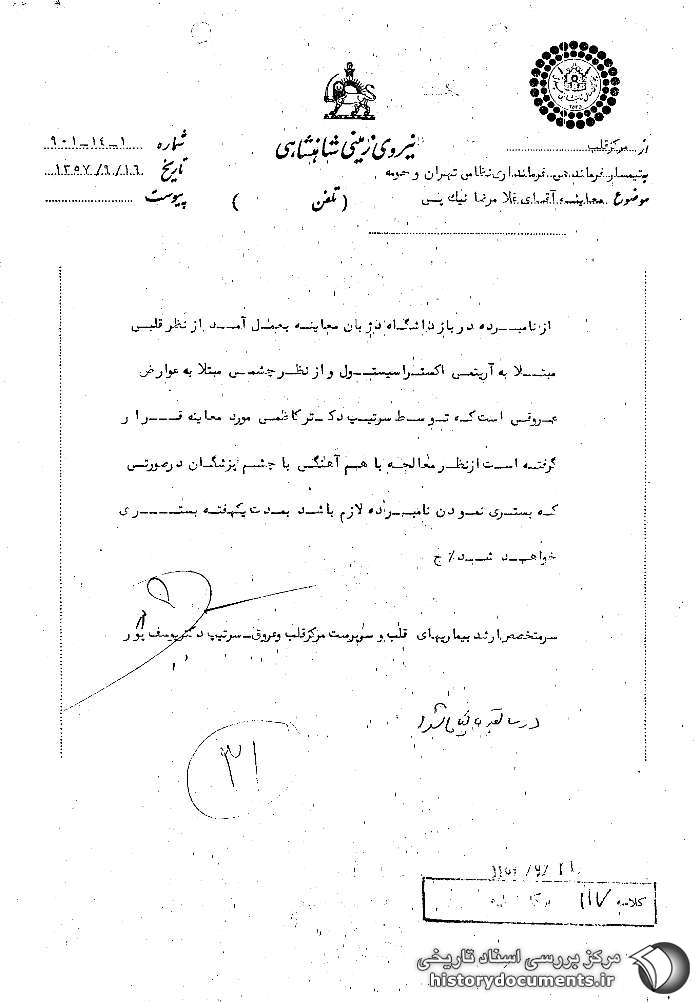 نیروی زمینی شاهنشاهی
از مرکز قلب
شماره ۱-۱۴-۹۰۱
به تیمسار فرماندهی فرمانداری نظامی تهران و حومه
تاریخ ۱۳۵۷/۹/۱۶
موضوع معاینه آقای غلامرضا نیک پی
(تلفن )
پیوست
از نامبرده در بازداشگاه دژبان معاینه بعمل آمد از نظر قلبی
مبتلا به آریتمی اکستراسیستول و از نظر چشمی مبتلا به عوارض
عروقی است که توسط سرتیپ دکتر کاظمی مورد معاینه قرار
گرفته است از نظر معالجه با هم آهنگی با چشم پزشگان درصورتی
که بستری نمودن نامبرده لازم باشد بمدت یکهفته بستری
خواهد شد/ ج
سرمتخصص ارشد بیماریهای قلب و سرپرست مرکز قلب و عروق - سرتیپ دکتر یوسف پور
۳۱
کلاسه ۱۱۷
مرکز بررسی اسناد تاریخی
historydocuments.ir